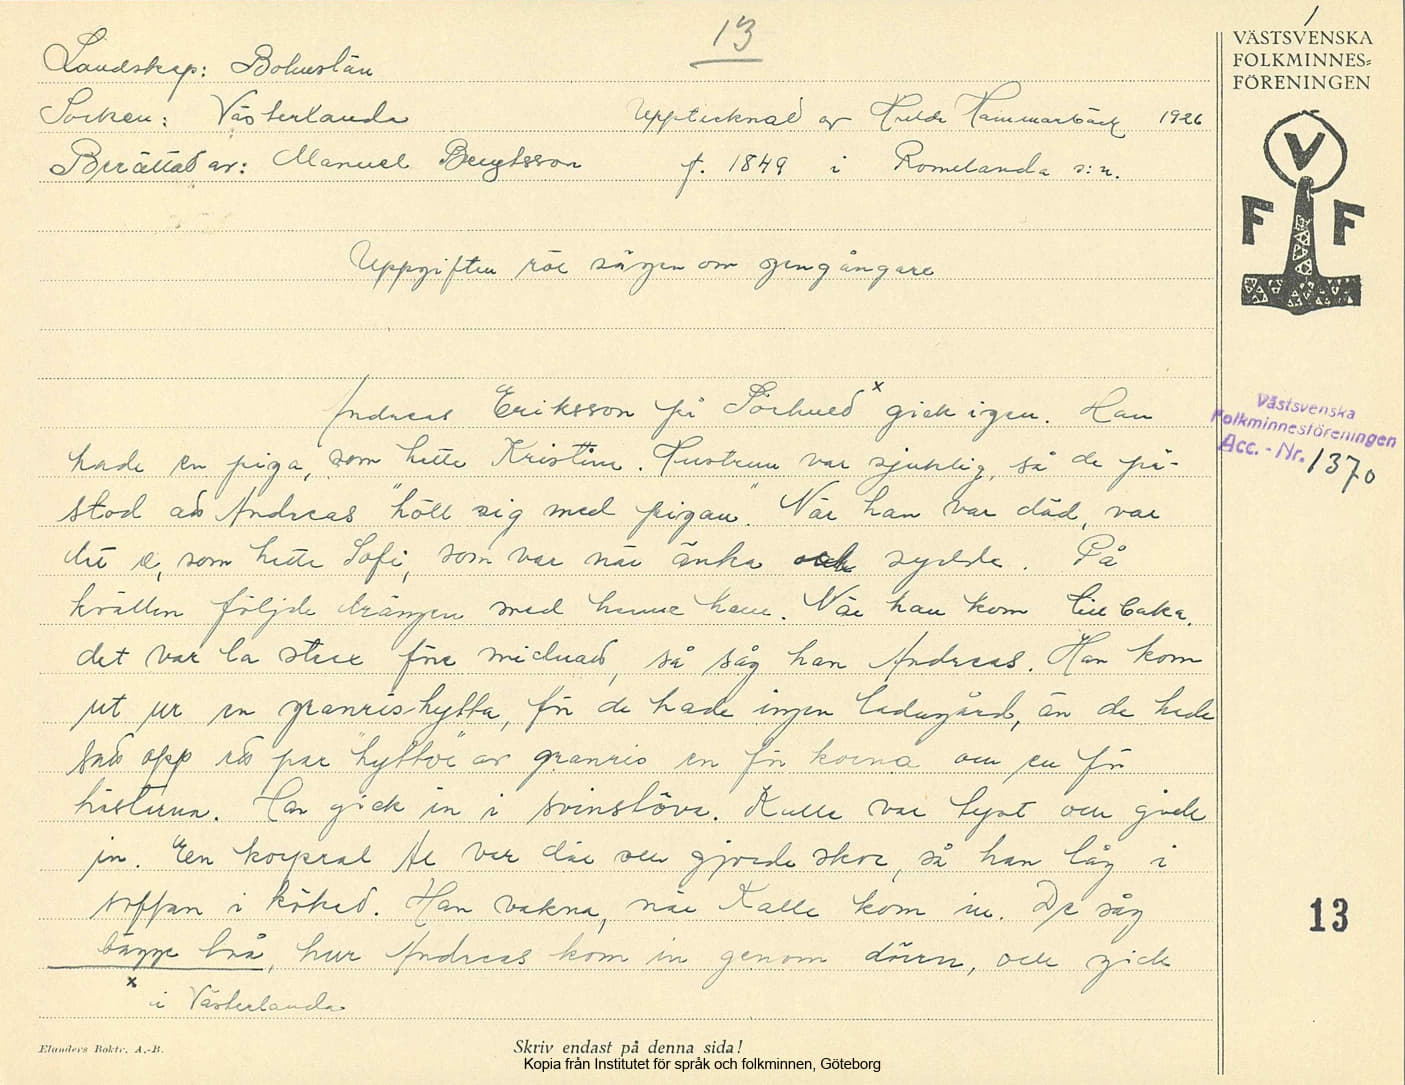 13
1
VÄSTSVENSKA
FOLKMINNES=
FÖRENINGEN
Landskap: Bohuslän
Socken: Västerlanda Upptecknad av Hulda Hammarbäck 1926
Berättad av: Manuel Bengtsson f. 1849 i Romelanda s:n.
V
F F
Uppgiften rör sägen om gengångare
Andreas Eriksson på Sörhued x gick igen. Han
hade en piga, som hette Kristin. Hustrun var sjuklig, så de på-
stod ad Andreas "höll sig med pigan". När han var död, var
det e, som hette Sofi, som var när änka och sydde. På
kvällen följde drängen med henne hem. När han kom tillbaka,
det var la strax före midnad, så såg han Andreas. Han kom
ut ur en granris-hytta, för de hade ingen ladugård, än de hade
satt opp ett par "hyttor" av granris en för korna och en för
hästarna. Han gick in i svinstöva. Kalle var tyst och gick
in. En korpral Al var där och gjorde skor, så han låg i
soffan i köked. Han vakna, när Kalle kom in. De såg
bägge två, hur Andreas kom in genom dörren, och gick
x i Västerlanda
Västsvenska
Folkminnesföreningen
Acc.-Nr. 1370
13
Elanders Boktr. A.-B.
Skriv endast på denna sida!
Kopia från Institutet för språk och folkminnen, Göteborg